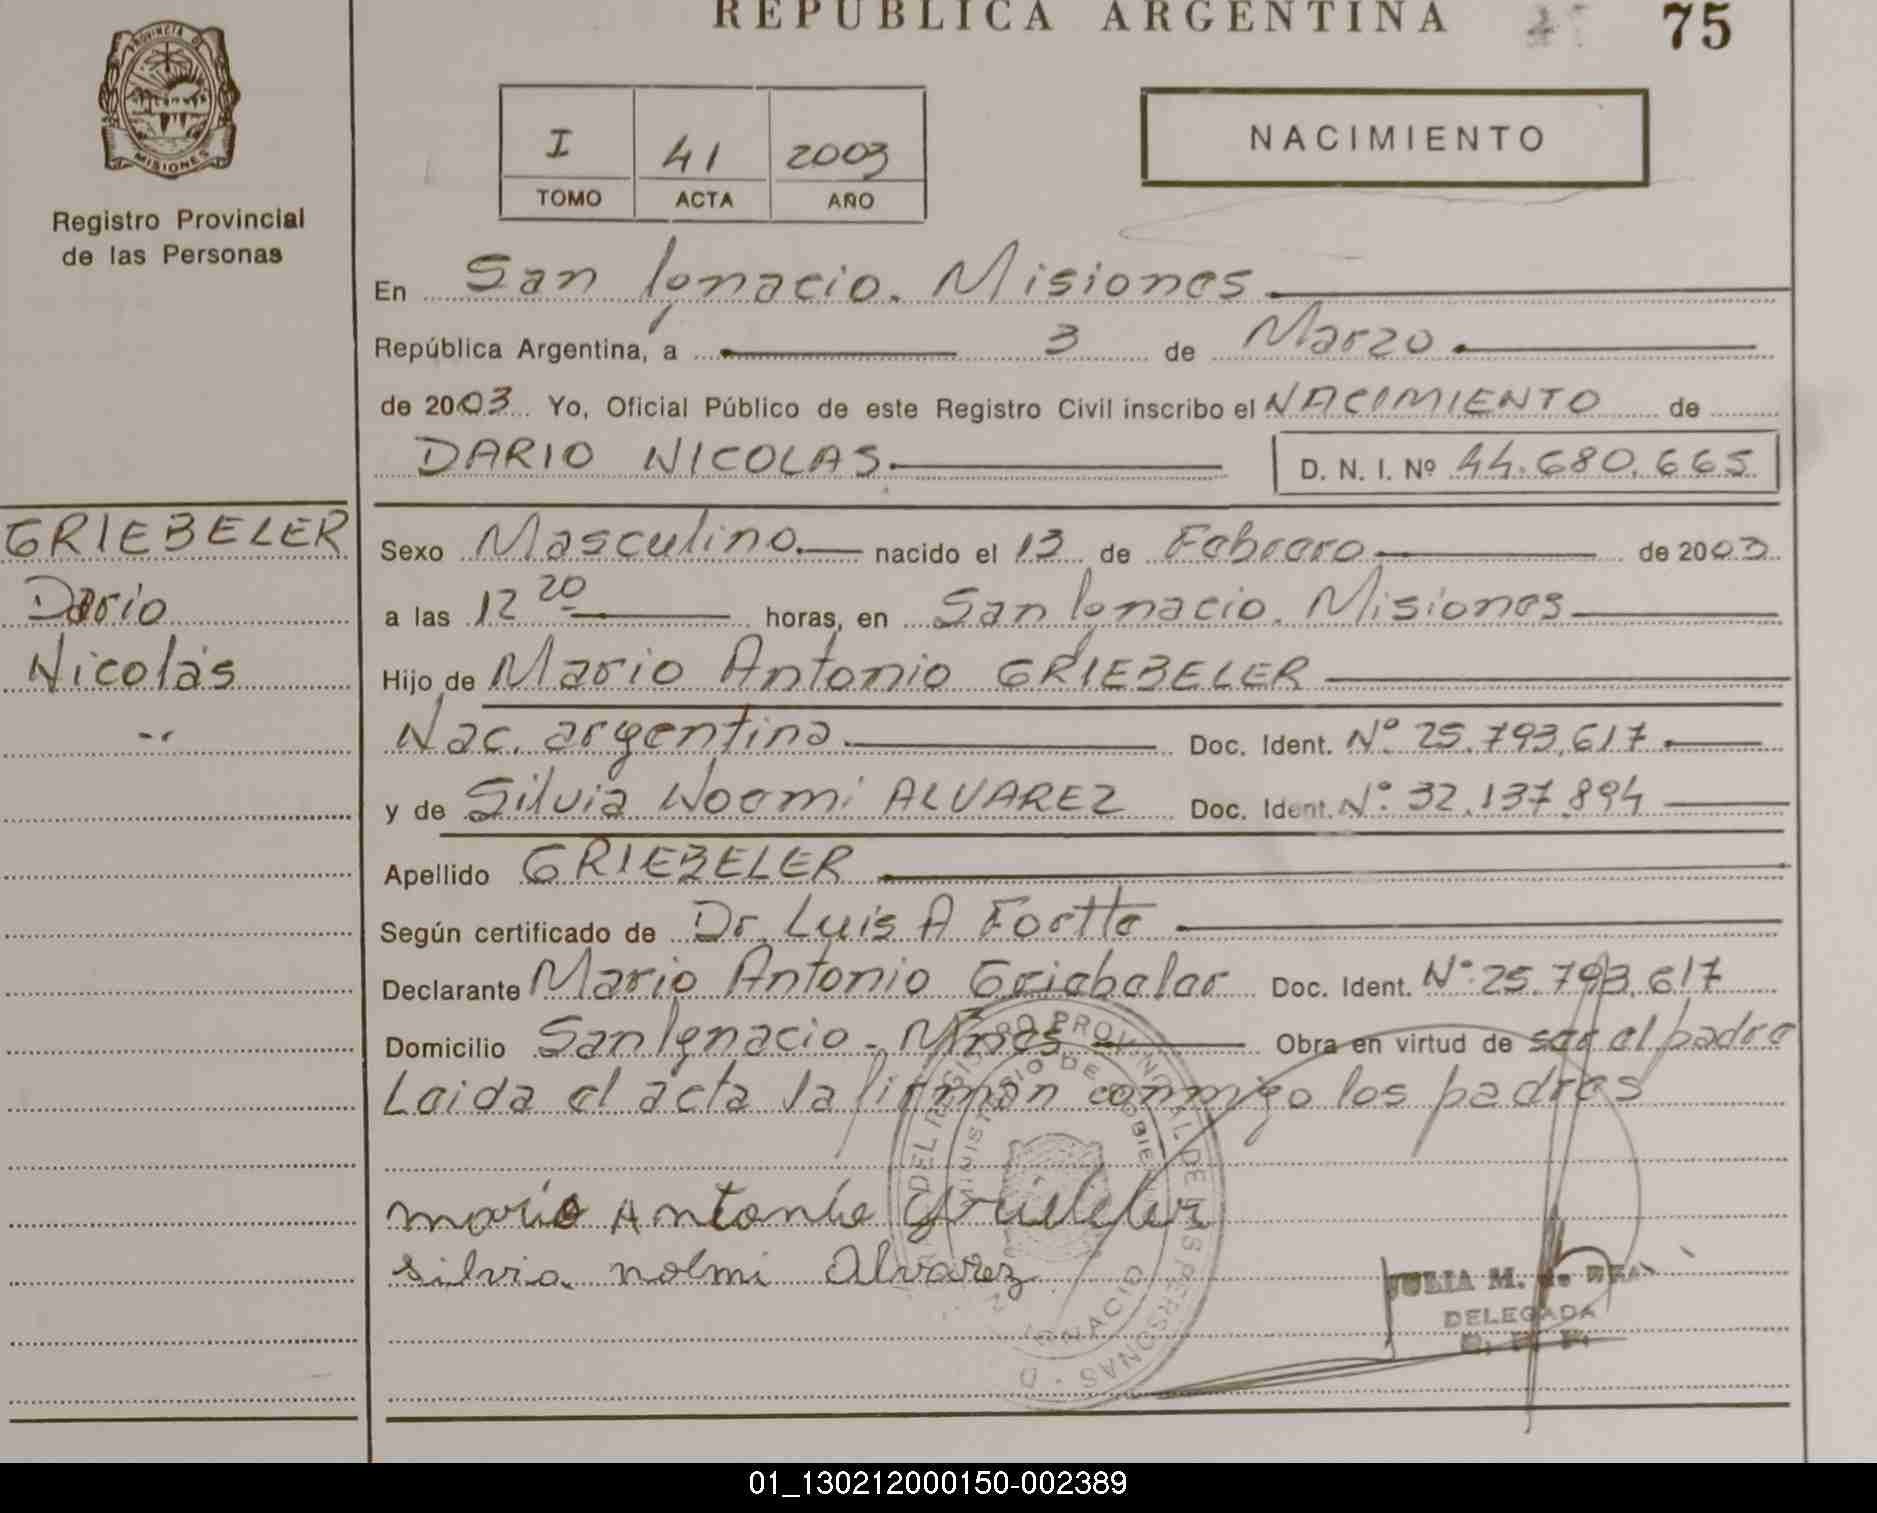 REPUBLICA ARGENTINA 75
PROVINCIA DE
MISIONES
Registro Provincial
de las Personas
I 41 2003
TOMO ACTA AÑO
NACIMIENTO
En San Ignacio. Misiones
República Argentina, a 3 de Marzo
de 2003 Yo, Oficial Público de este Registro Civil inscribo el NACIMIENTO de
DARIO NICOLAS D. N. I. Nº 44.680.665
GRIEBELER
Dario
Nicolás
Sexo Masculino. nacido el 13 de Febrero de 2003
a las 12 20 horas, en San Ignacio. Misiones
Hijo de Mario Antonio GRIEBELER
Nac. argentina Doc. Ident. Nº 25.793.617
y de Silvia Noemi ALVAREZ Doc. Ident. Nº 32.137.894
Apellido GRIEBELER
Según certificado de Dr. Luis A
Declarante Mario Antonio Griebeler Doc. Ident. Nº 25.793.617
Domicilio San Ignacio - Mnes Obra en virtud de ser el padre
Leida el acta la firman conmigo los padres
mario Antonio Griebeler
silvia noemi Alvarez
DEL REGISTRO PROVINCIAL DE LAS PERSONAS
MINISTERIO DE GOBIERNO
IGNACIO
JULIA M. de
DELEGADA
01_130212000150-002389